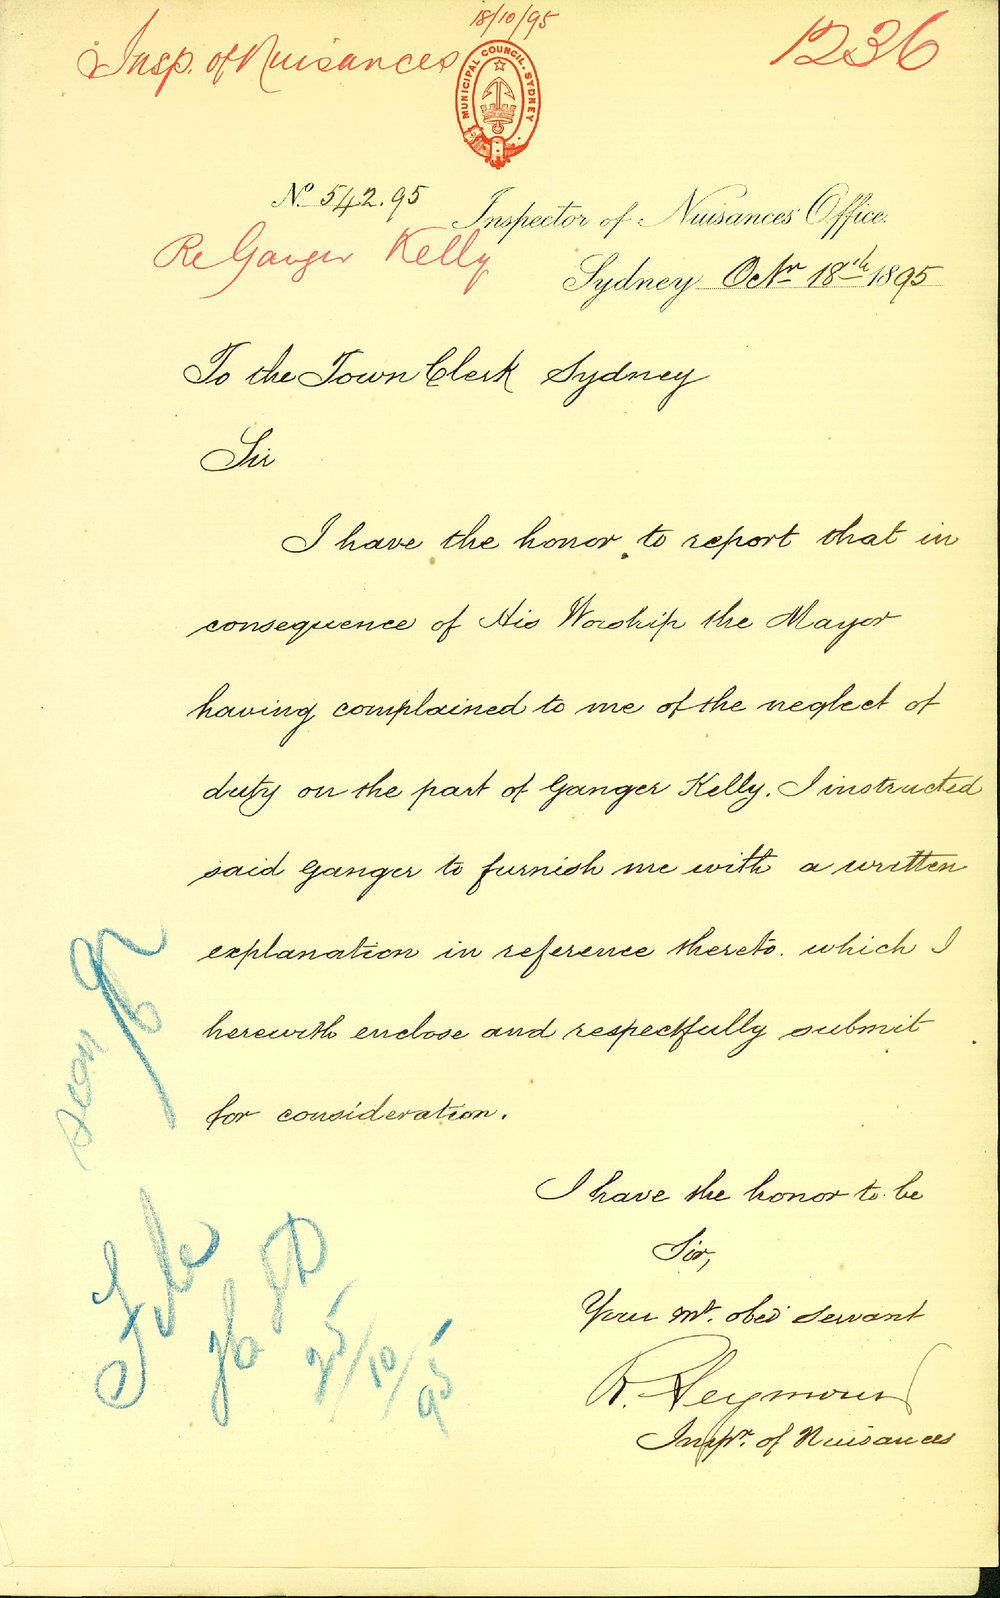 18/10/95
Insp. of Nuisances
1236
MUNICIPAL COUNCIL. SYDNEY
No. 542.95
Inspector of Nuisances Office.
Re Ganger Kelly
Sydney Octr 18th 1895
To the Town Clerk Sydney
Sir
I have the honor to report that in
consequence of His Worship the Mayor
having complained to me of the neglect of
duty on the part of Ganger Kelly. I instructed
said Ganger to furnish me with a written
explanation in reference thereto. which I
herewith enclose and respectfully submit
for consideration.
I have the honor to be
Sir,
Your mt. obed servant
R. Seymour
Inspr. of Nuisances
seen
File
25/10/95